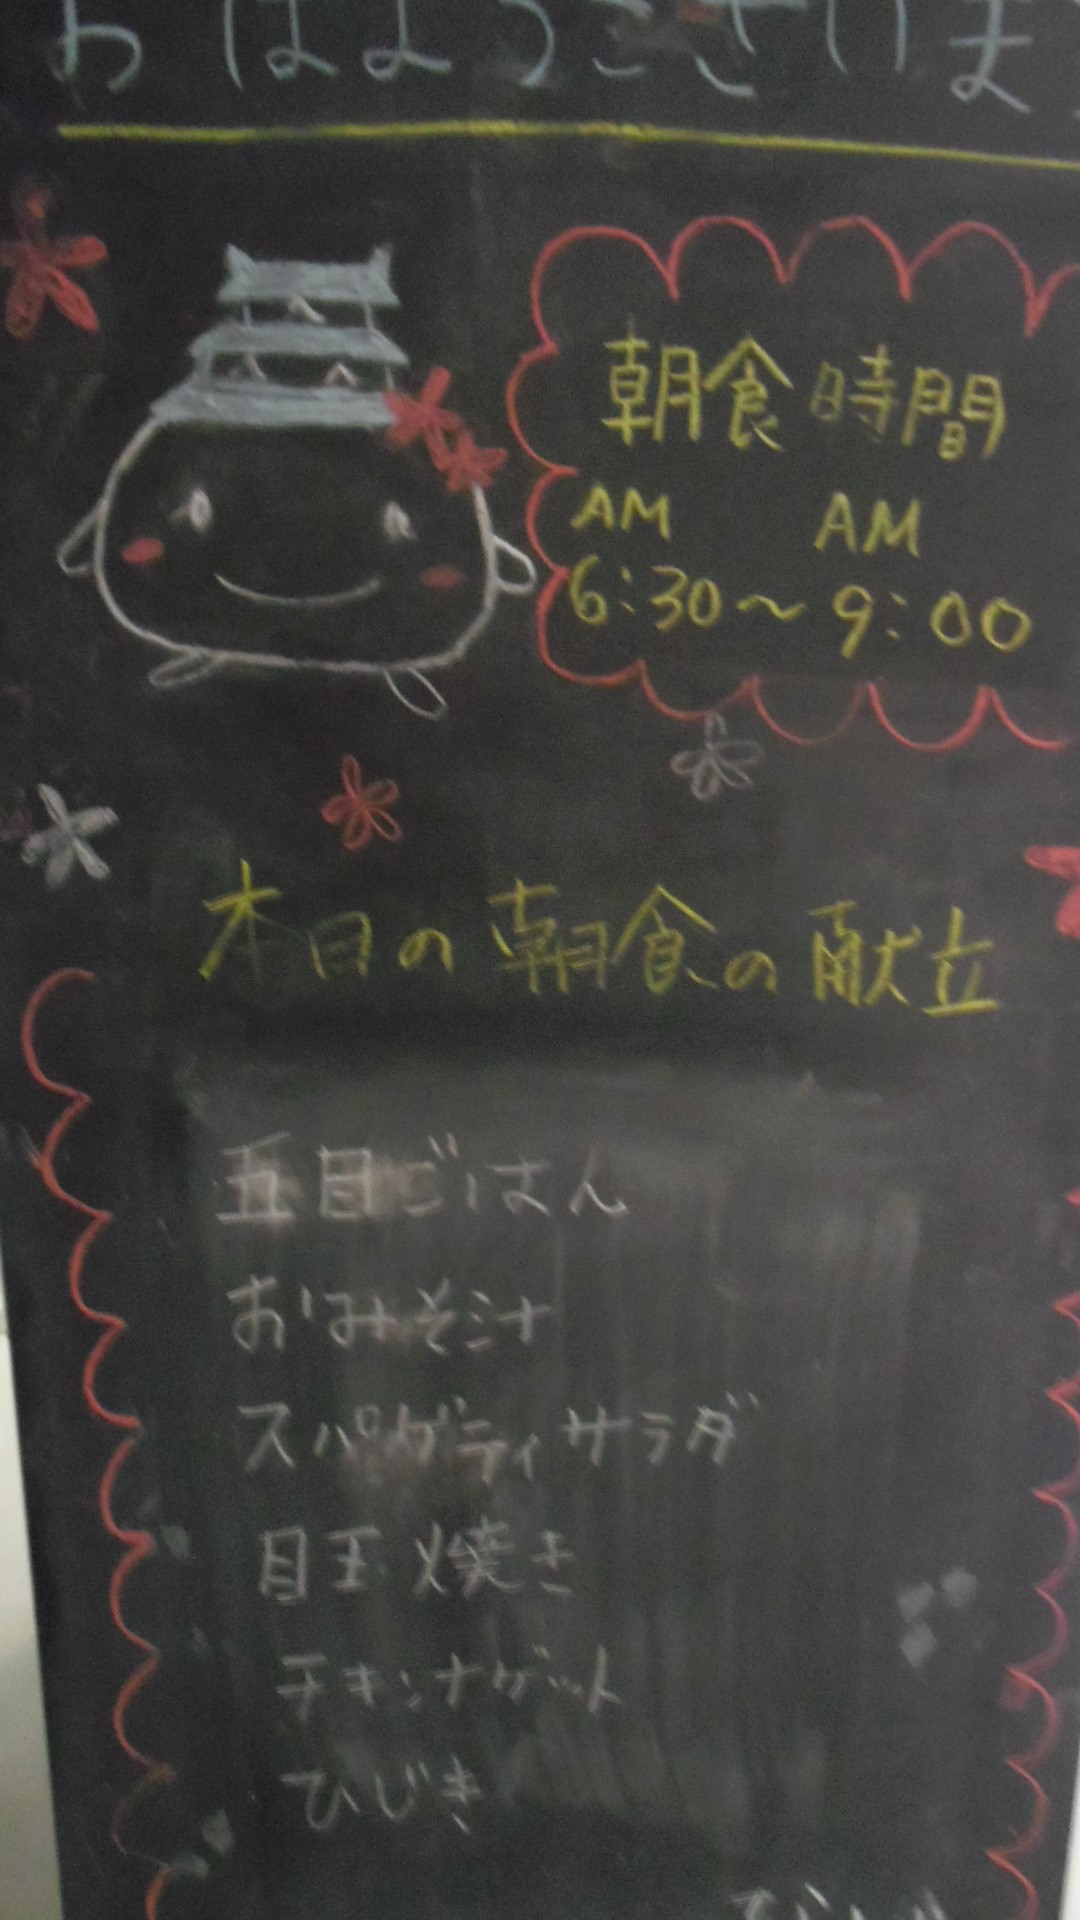 おはようございま
朝食時間
AM AM
6:30～9:00
本日の朝食の献立
五目ごはん
おみそ汁
スパゲティサラダ
目玉焼き
チキンナゲット
ひじき
など